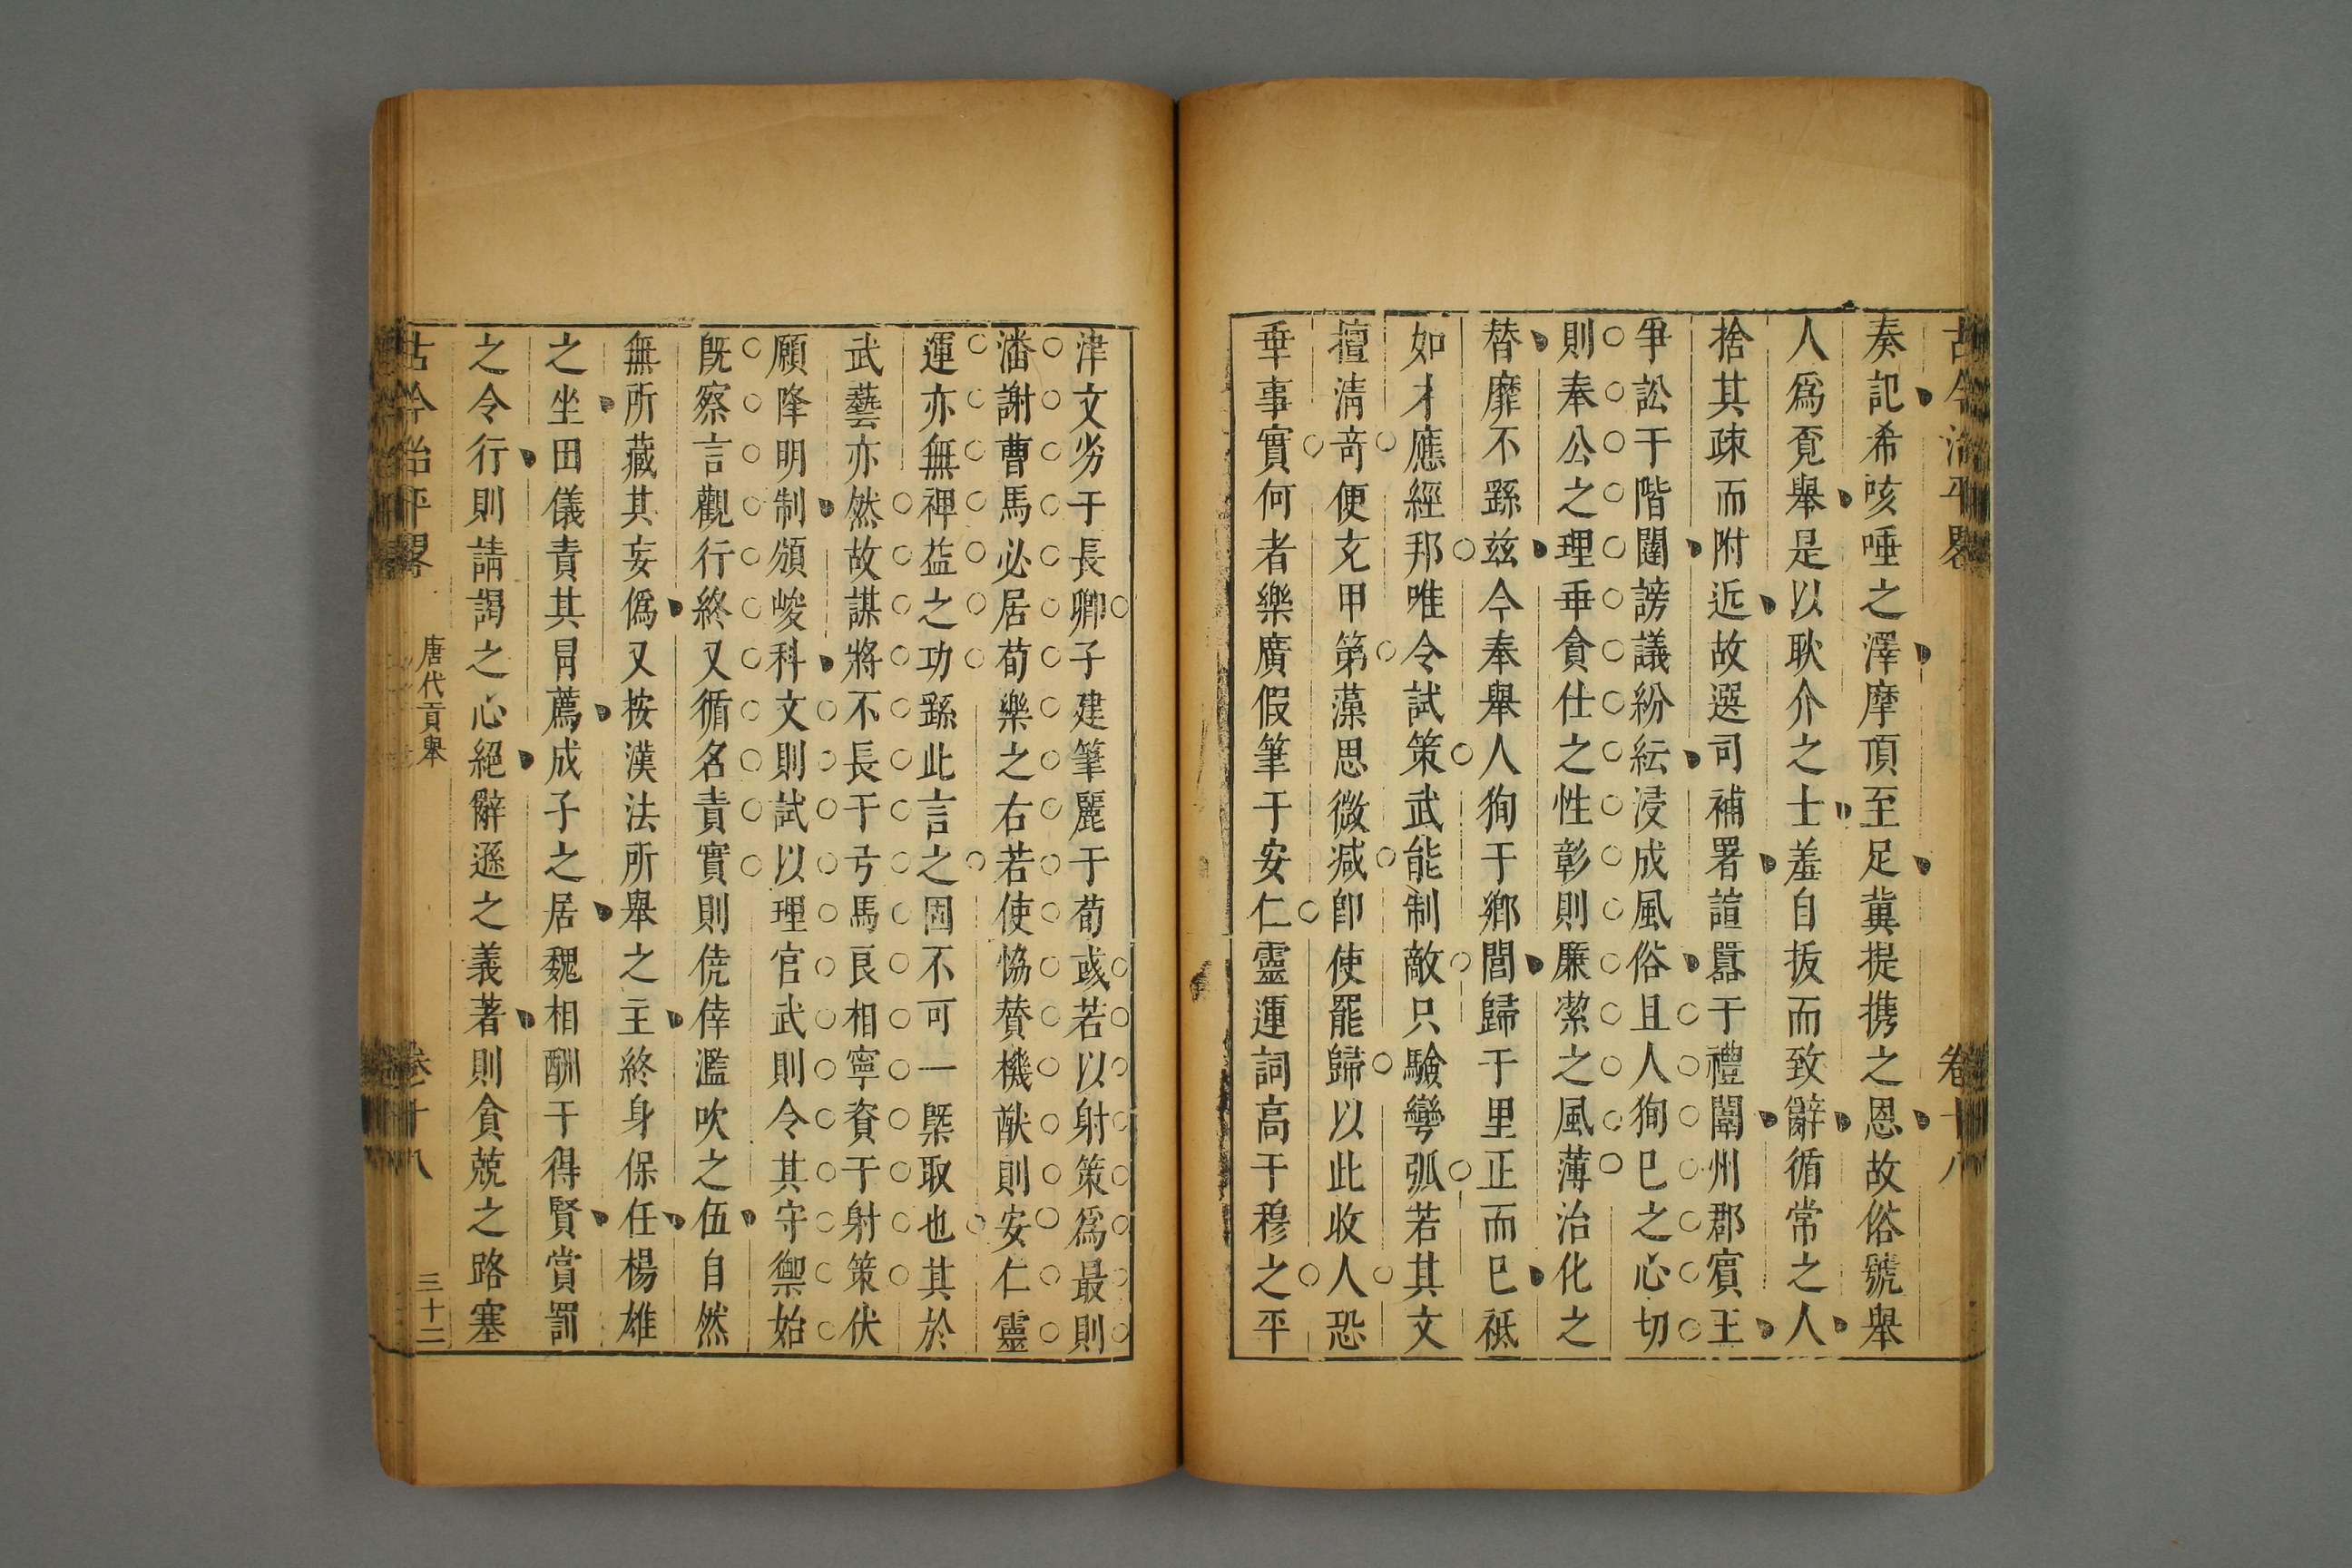 古今治平畧 卷十八
奏記希咳唾之澤摩頂至足冀提携之恩故俗號舉
人爲覓舉是以耿介之士羞自拔而致辭循常之人
捨其疎而附近故選司補署諠囂于禮闈州郡賓王
爭訟于階闥謗議紛紜浸成風俗且人狥巳之心切
則奉公之理乖貪仕之性彰則廉潔之風薄治化之
替靡不繇兹今奉舉人狥于鄉閭歸于里正而巳祗
如才應經邦唯令試策武能制敵只驗彎弧若其文
擅淸竒便充甲第藻思微减卽使罷歸以此收人恐
乖事實何者樂廣假筆于安仁靈運詞高于穆之平
津文劣于長卿子建筆麗于荀彧若以射策爲最則
潘謝曹馬必居荀樂之右若使恊賛機猷則安仁靈
運亦無裨益之功繇此言之固不可一槩取也其於
武藝亦然故謀將不長于弓馬良相寧資于射策伏
願降明制頒峻科文則試以理官武則令其守禦始
旣察言觀行終又循名責實則僥倖濫吹之伍自然
無所藏其妄僞又按漢法所舉之主終身保任楊雄
之坐田儀責其冐薦成子之居魏相酬于得賢賞罰
之令行則請謁之心絕辭遜之義著則貪兢之路塞
古今治平畧 唐代貢舉 卷十八 三十二